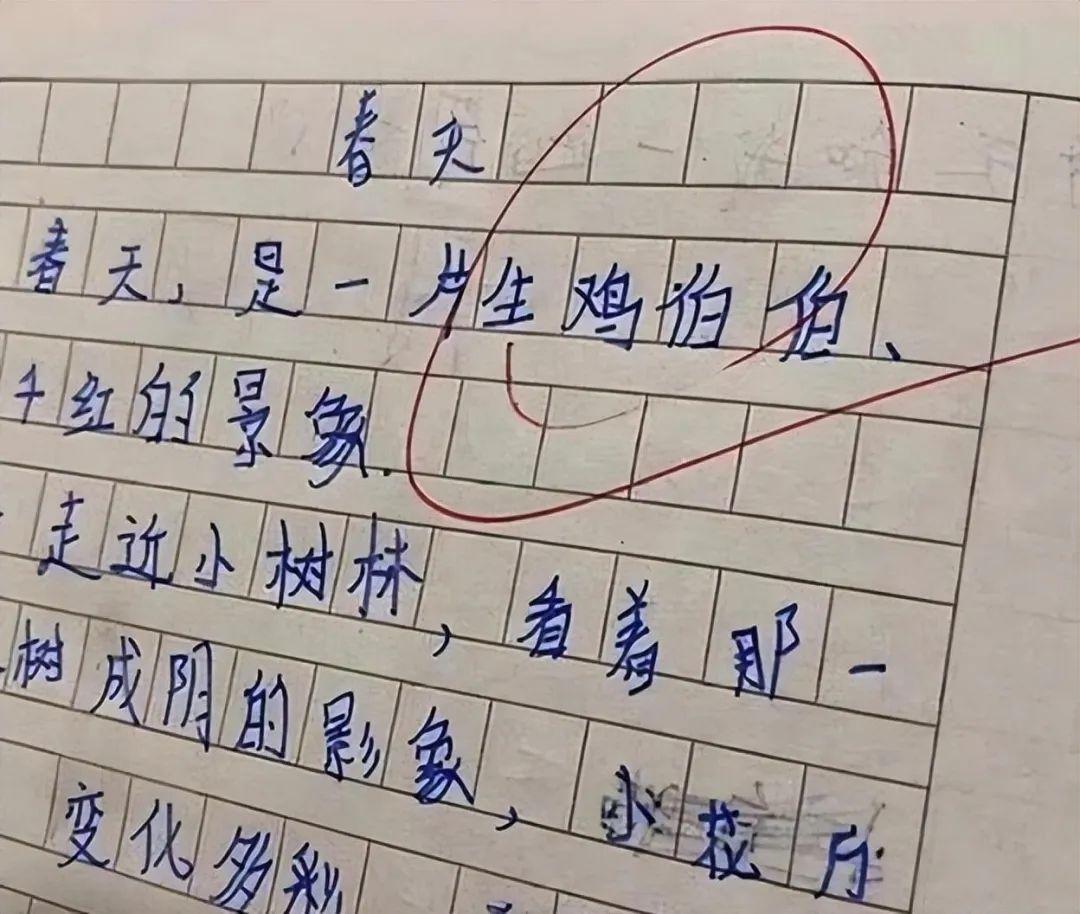 春天
春天，是一片生鸡伯伯、
千红的景象.
走近小树林，看着那一
树成阴的影象，小花斤
变化多彩